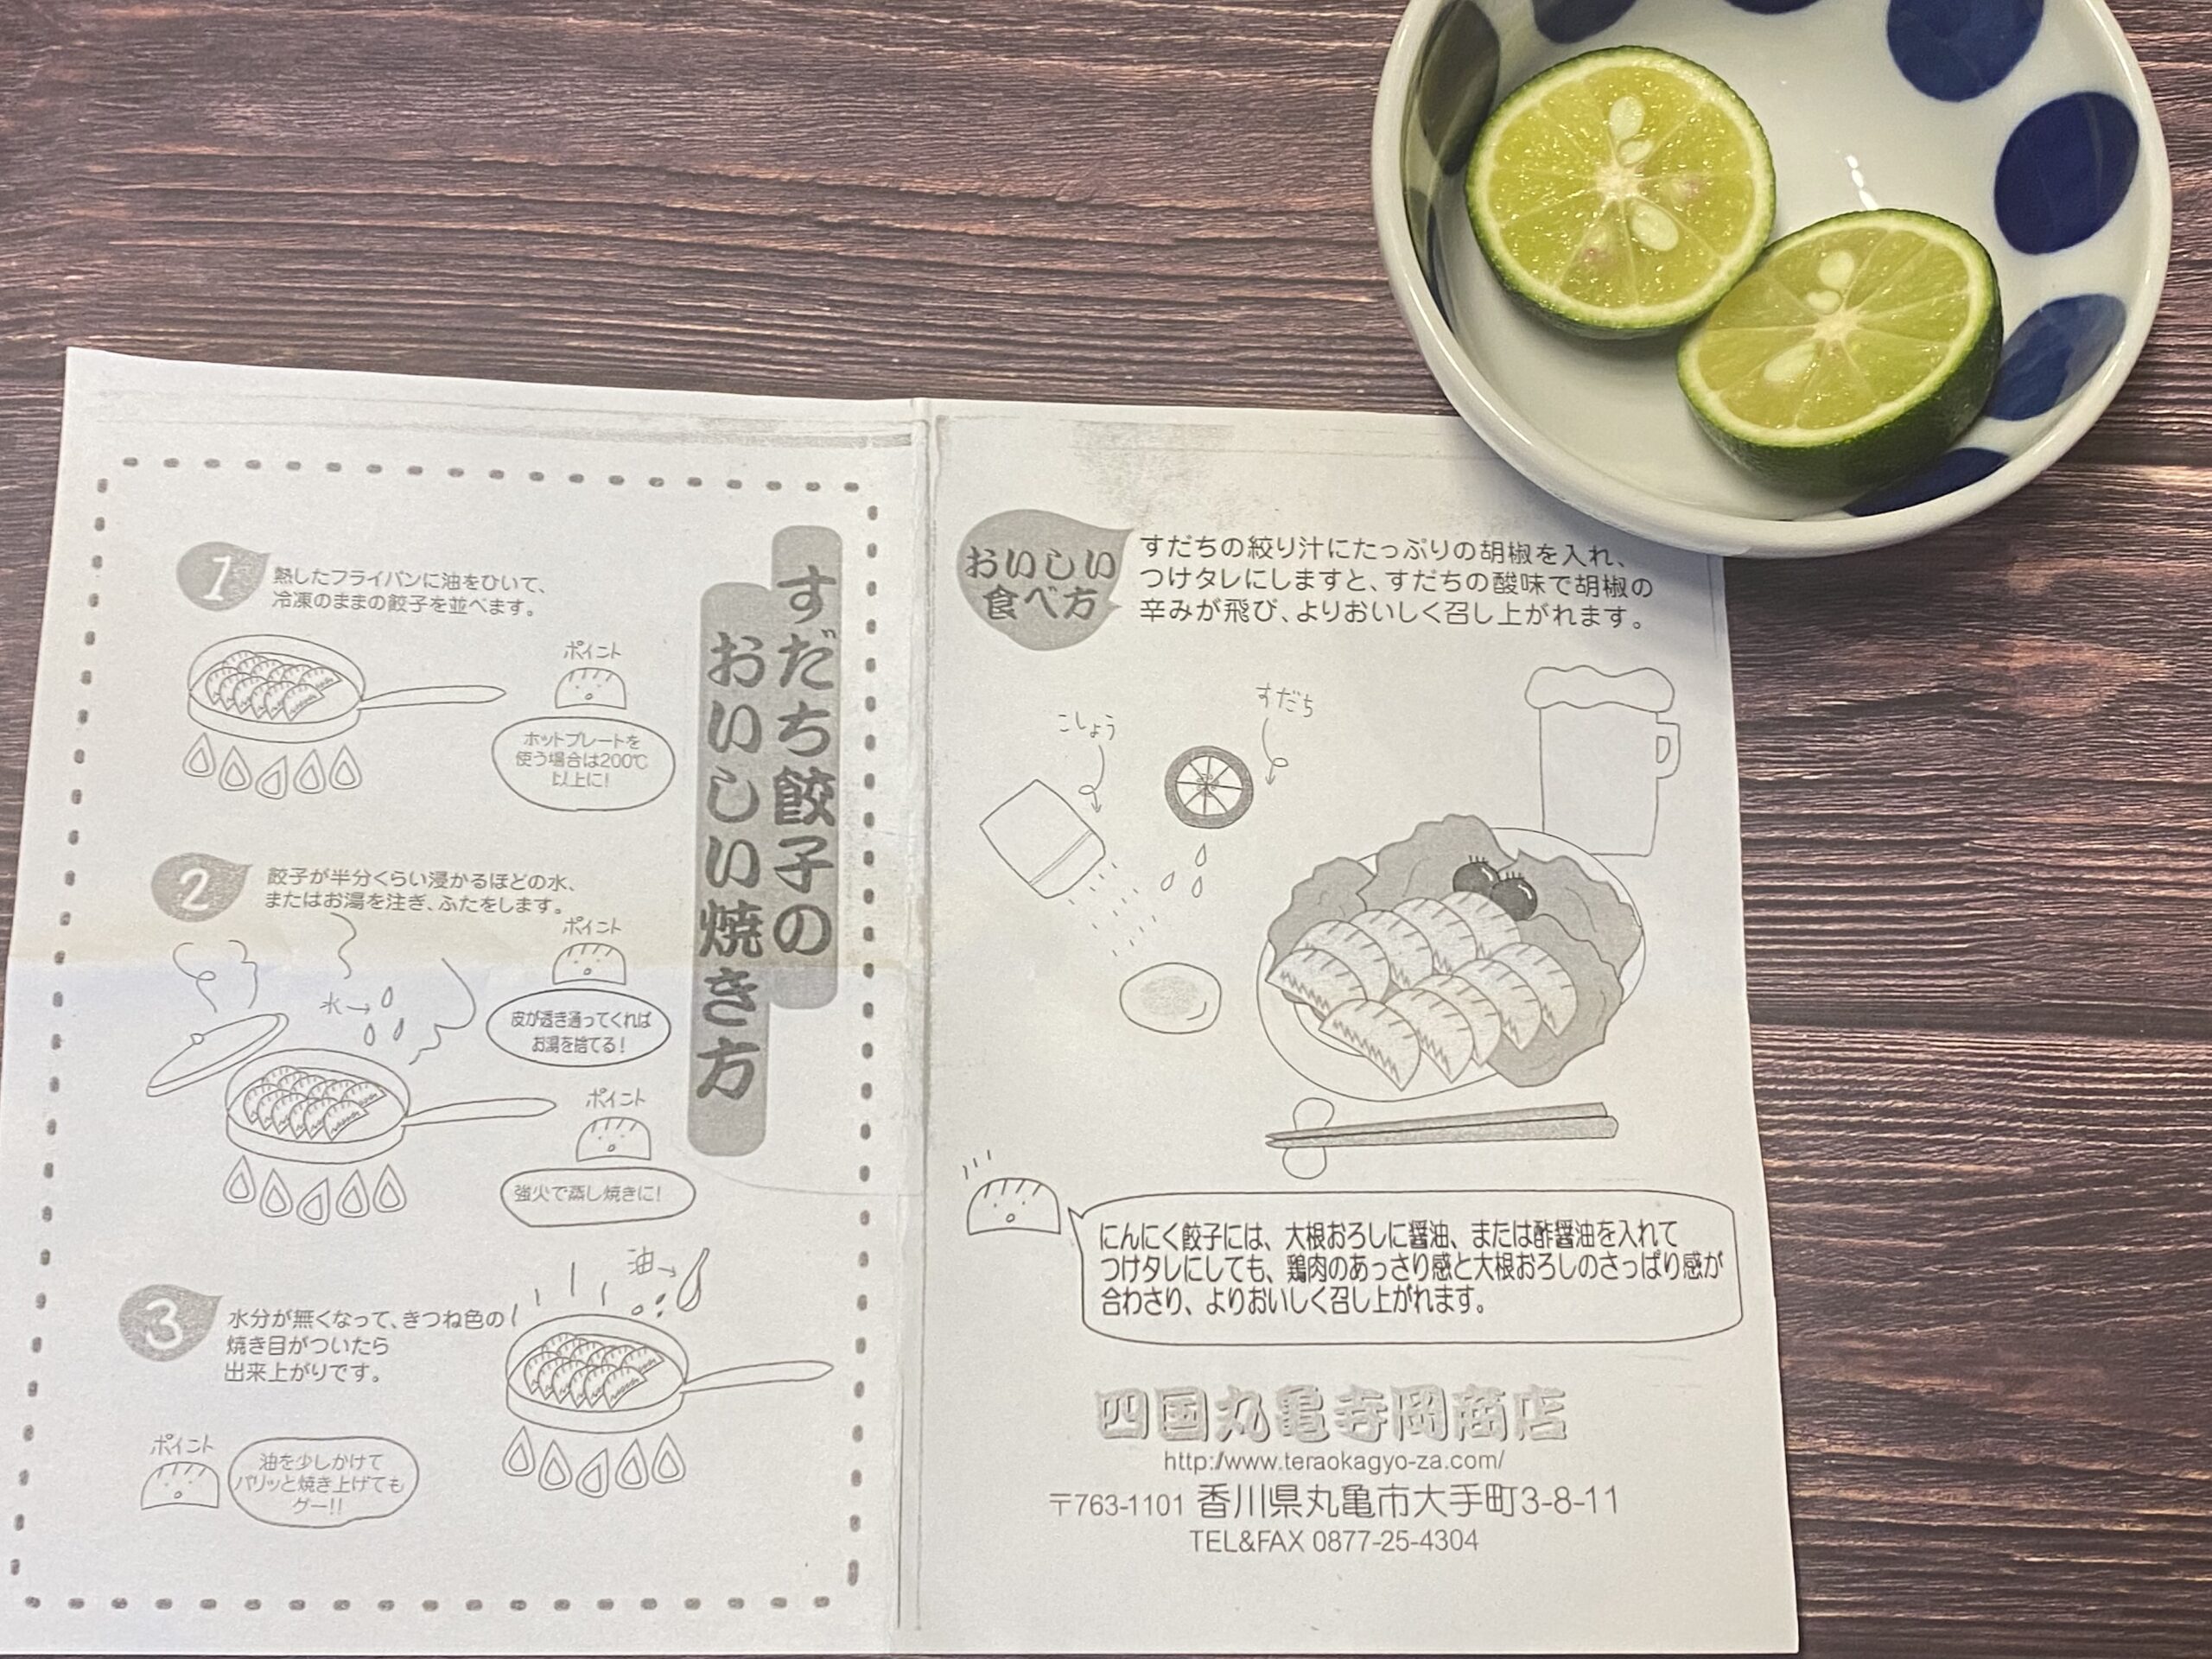 すだち餃子の
おいしい焼き方
1
熱したフライパンに油をひいて、
冷凍のままの餃子を並べます。
ポイント
ホットプレートを
使う場合は200℃
以上に!
2
餃子が半分くらい浸かるほどの水、
またはお湯を注ぎ、ふたをします。
水→
ポイント
皮が透き通ってくれば
お湯を捨てる!
ポイント
強火で蒸し焼きに!
3
水分が無くなって、きつね色の
焼き目がついたら
出来上がりです。
油→
ポイント
油を少しかけて
パリッと焼き上げても
グー!!
おいしい
食べ方
すだちの絞り汁にたっぷりの胡椒を入れ、
つけタレにしますと、すだちの酸味で胡椒の
辛みが飛び、よりおいしく召し上がれます。
こしょう
すだち
にんにく餃子には、大根おろしに醤油、または酢醤油を入れて
つけタレにしても、鶏肉のあっさり感と大根おろしのさっぱり感が
合わさり、よりおいしく召し上がれます。
四国丸亀寺岡商店
http://www.teraokagyo-za.com/
〒763-1101 香川県丸亀市大手町3-8-11
TEL&FAX 0877-25-4304